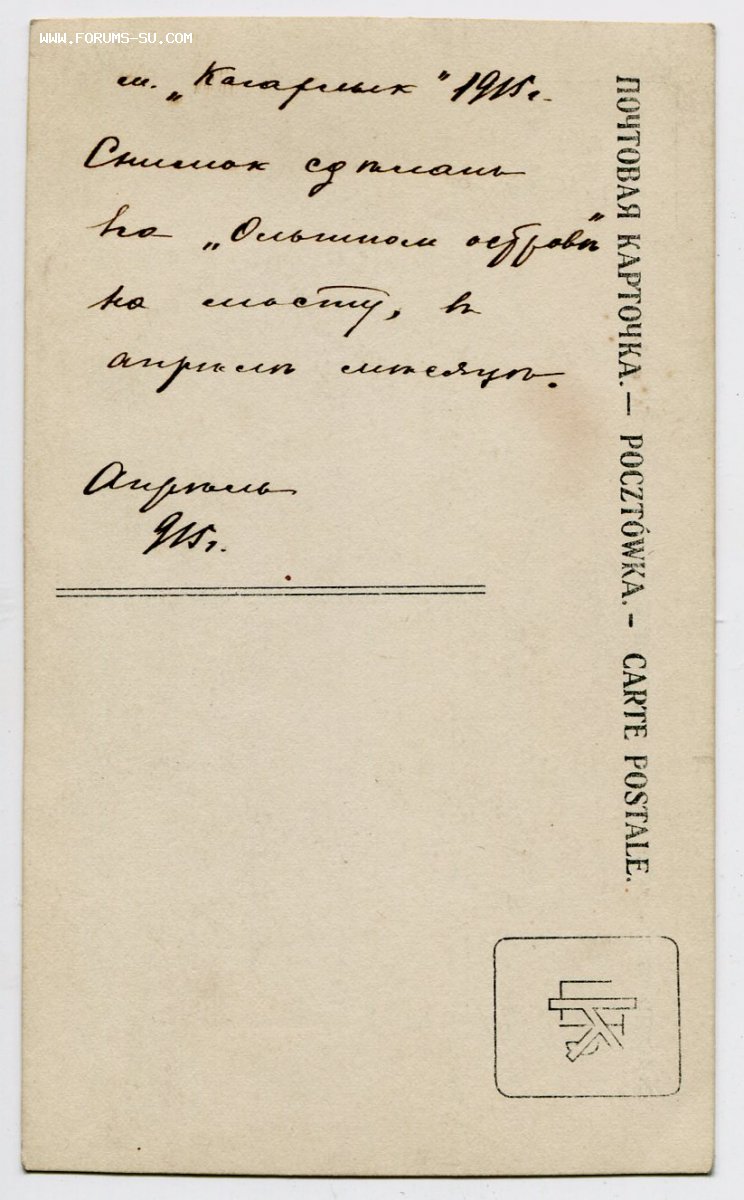 WWW.FORUMS-SU.COM
м. „Кагарлык" 1915 г.
Снимок сделань
на „Ольшном островѣ"
на мосту, в
апрѣлѣ мѣсяцѣ.
Апрѣль
915 г.
ПОЧТОВАЯ КАРТОЧКА. — POCZTÓWKA. - CARTE POSTALE.